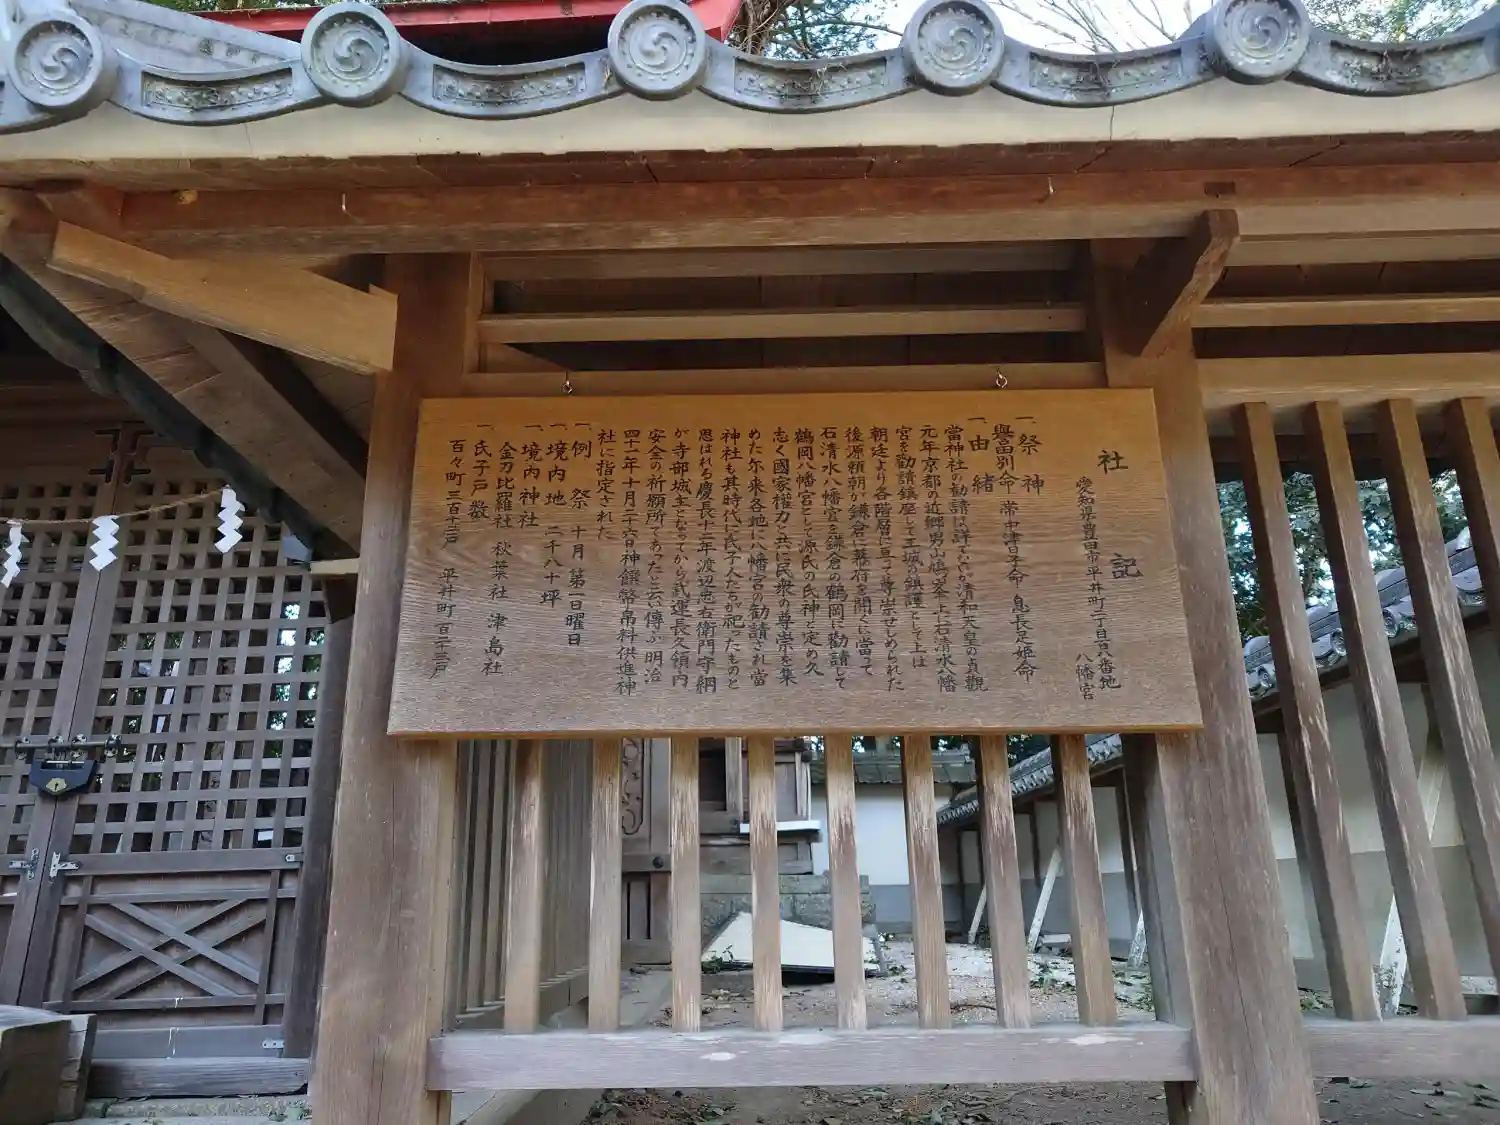 社記
愛知県豊田市平井町二丁目百八番地
八幡宮
一、祭神
譽田別命 帯中津日子命 息長足姫命
一、由緒
當神社の勧請は詳でないが清和天皇の貞觀
元年京都の近郷男山鳩が峯上に石清水八幡
宮を勧請鎮座して王城の鎮護として上は
朝廷より各階層に亘って尊崇せしめられた
後源頼朝が鎌倉に幕府を開くに當って
石清水八幡宮を鎌倉の鶴岡に勧請して
鶴岡八幡宮として源氏の氏神と定め久
志く國家權力と共に民衆の尊崇を集
めた尓来各地に八幡宮の勧請され當
神社も其時代に氏子人たちが祀ったものと
思はれる慶長十二年渡辺半右衛門守綱
が寺部城主となってから武運長久領内
安全の祈願所であったと云い傳ふ明治
四十一年十月二十六日神饌幣帛料供進神
社に指定された
一、例祭 十月第一日曜日
一、境内地 二千八十坪
一、境内神社
金刀比羅社 秋葉社 津島社
一、氏子戸数
百々町三百十三戸 平井町百二十三戸